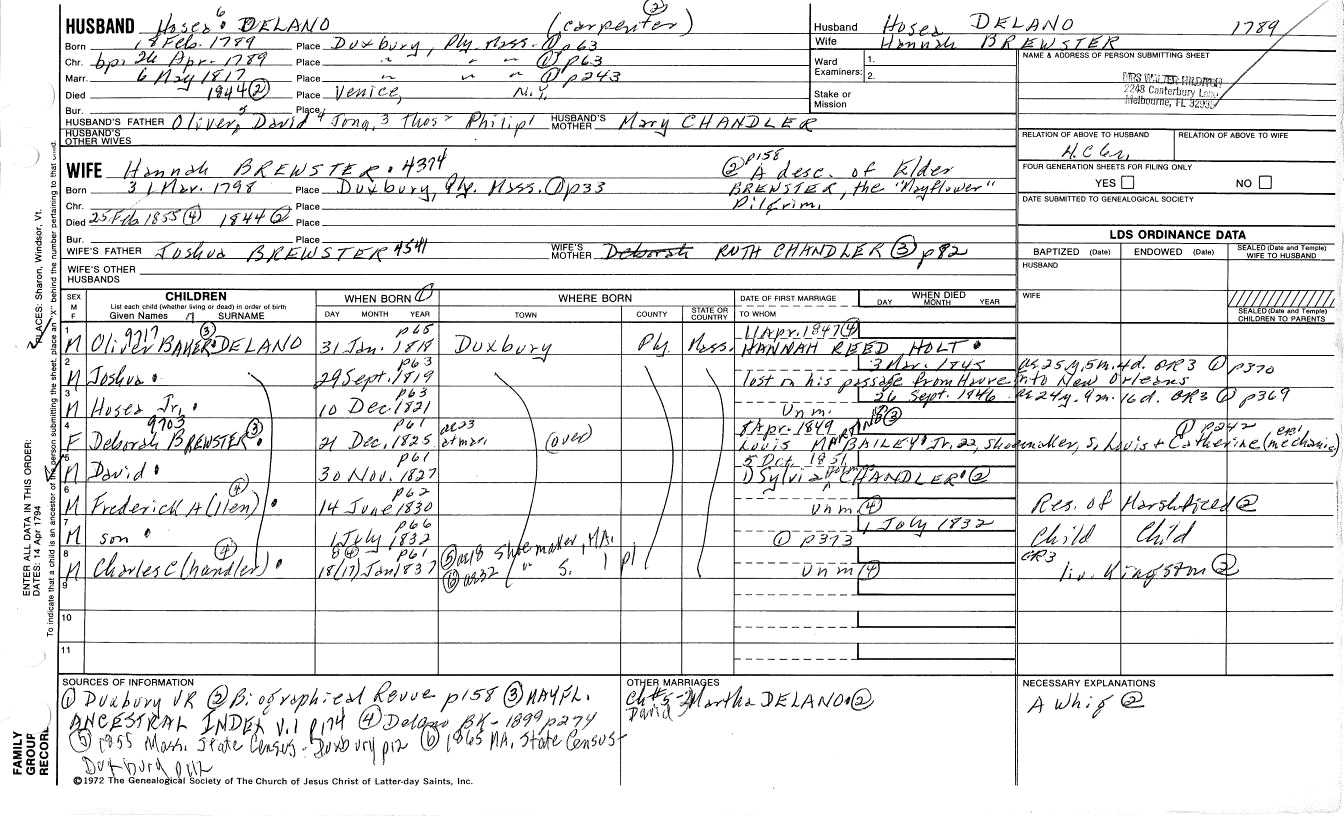 HUSBAND Hosea 6 DELANO (carpenter) ②
Born 18 Feb. 1789 Place Duxbury, Ply. Mass. ① p63
Chr. bp. 26 Apr. 1789 Place " " " ① p63
Marr. 6 May 1817 Place " " " ① p243
Died 1844 ② Place Venice, N.Y.
Bur. Place
HUSBAND'S FATHER Oliver 5, David 4 Jona. 3 Thos 2 Philip 1 HUSBAND'S MOTHER Mary CHANDLER
HUSBAND'S OTHER WIVES
WIFE Hannah BREWSTER. 4374
② p158 A desc. of Elder
BREWSTER, the "Mayflower"
Pilgrim.
Born 31 Mar. 1798 Place Duxbury, Ply. Mass. ① p33
Chr. Place
Died 25 Feb 1855 ④ 1844 ② Place
Bur. Place
WIFE'S FATHER Joshua BREWSTER 4541 WIFE'S MOTHER Deborah RUTH CHANDLER ③ p82
WIFE'S OTHER HUSBANDS
Husband Hosea DELANO 1789
Wife Hannah BREWSTER
Ward 1.
Examiners: 2.
Stake or Mission
NAME & ADDRESS OF PERSON SUBMITTING SHEET
MRS WALTER
2248 Canterbury Lane
Melbourne, FL 32935
RELATION OF ABOVE TO HUSBAND RELATION OF ABOVE TO WIFE
FOUR GENERATION SHEETS FOR FILING ONLY
YES NO
DATE SUBMITTED TO GENEALOGICAL SOCIETY
LDS ORDINANCE DATA
BAPTIZED (Date) ENDOWED (Date) SEALED (Date and Temple) WIFE TO HUSBAND
HUSBAND
WIFE
SEALED (Date and Temple) CHILDREN TO PARENTS
SEX M F
CHILDREN
List each child (whether living or dead) in order of birth
Given Names 7 SURNAME
WHEN BORN ①
DAY MONTH YEAR
WHERE BORN
TOWN COUNTY STATE OR COUNTRY
DATE OF FIRST MARRIAGE
TO WHOM
WHEN DIED
DAY MONTH YEAR
1 M Oliver BAKER DELANO 9717 ③ 31 Jan. 1818 p65 Duxbury Ply. Mass. 11 Apr. 1847 ④
HANNAH REED HOLT
2 M Joshua 29 Sept. 1819 p63 3 Mar. 1845 ae 25y, 5m. 4d. GR3 ① p370
lost on his passage from Havre into New Orleans
3 M Hosea Jr. 10 Dec. 1821 p63 Unm. 26 Sept. 1846 ae 24y. 9m. 16d. GR3 ① p369
4 F Deborah BREWSTER 9703 ③ 21 Dec. 1825 p61 ae 23 at mar. (over) 8 Apr. 1849 ③
Louis MARTIN BAILEY Jr. 22, Shoemaker, S, Louis + Catherine (mechanic) ① p242
5 M David 30 Nov. 1827 p61 5 Oct. 1851
DSylvia CHANDLER ②
6 M Frederick A(llen) ④ 14 June 1830 p62 unm ④ Res. of Marshfield ②
7 M son 1 July 1832 p66 1 July 1832 Child Child
① p373
8 M Charles C(handler) ④ 18 (17) Jan 1837 p61 ⑤ ae 18 Shoemaker, MA. unm ④ GR3 liv. Kingston ②
⑥ ae 32 " S. 1 pl
9
10
11
SOURCES OF INFORMATION
① Duxbury VR ② Biographical Revue p158 ③ MAYFL.
ANCESTRAL INDEX V.1 p174 ④ Delano BK - 1899 p274
⑤ 1855 Mass. State Census - Duxbury p12 ⑥ 1865 MA. State Census -
Duxbury p12
OTHER MARRIAGES
Ch #5 - 2 Martha DELANO ②
David
NECESSARY EXPLANATIONS
A Whig ②
©1972 The Genealogical Society of The Church of Jesus Christ of Latter-day Saints, Inc.
FAMILY GROUP RECORD
ENTER ALL DATA IN THIS ORDER:
DATES: 14 Apr 1794
PLACES: Sharon, Windsor, Vt.
To indicate that a child is an ancestor of the person submitting the sheet, place an "X" behind the number pertaining to that child.